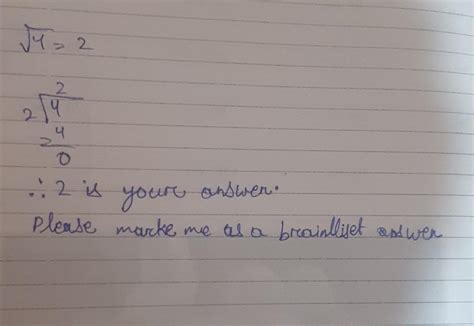 √4 = 2
2
2√4
-4
0
∴ 2 is youre answer.
Please marke me as a brainlliset answer